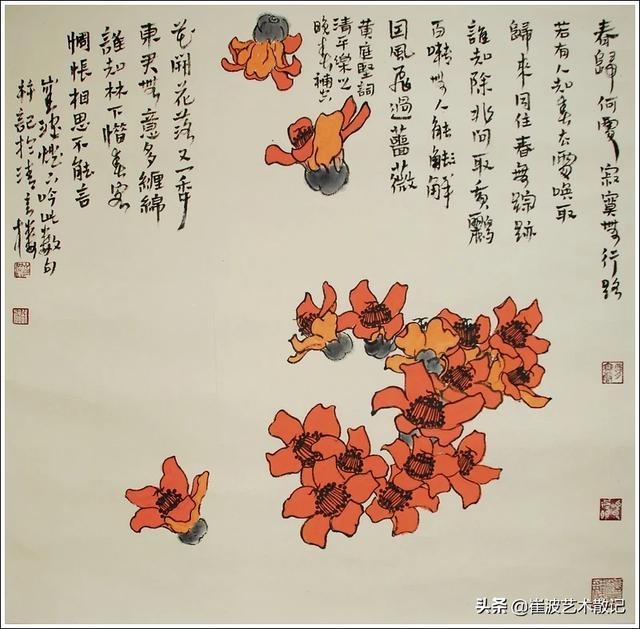 春歸何處寂寞無行路
若有人知春去處喚取
歸來同住春無踪跡
誰知除非問取黃鸝
百囀無人能解
因風飛過薔薇
黃庭堅詞
清平樂之
晚春補
花開花落又一年
東君無意多纏綿
誰知林下惜春客
惆悵相思不能言
燈下吟此數句
并記於清
头条 @崔波艺术散记